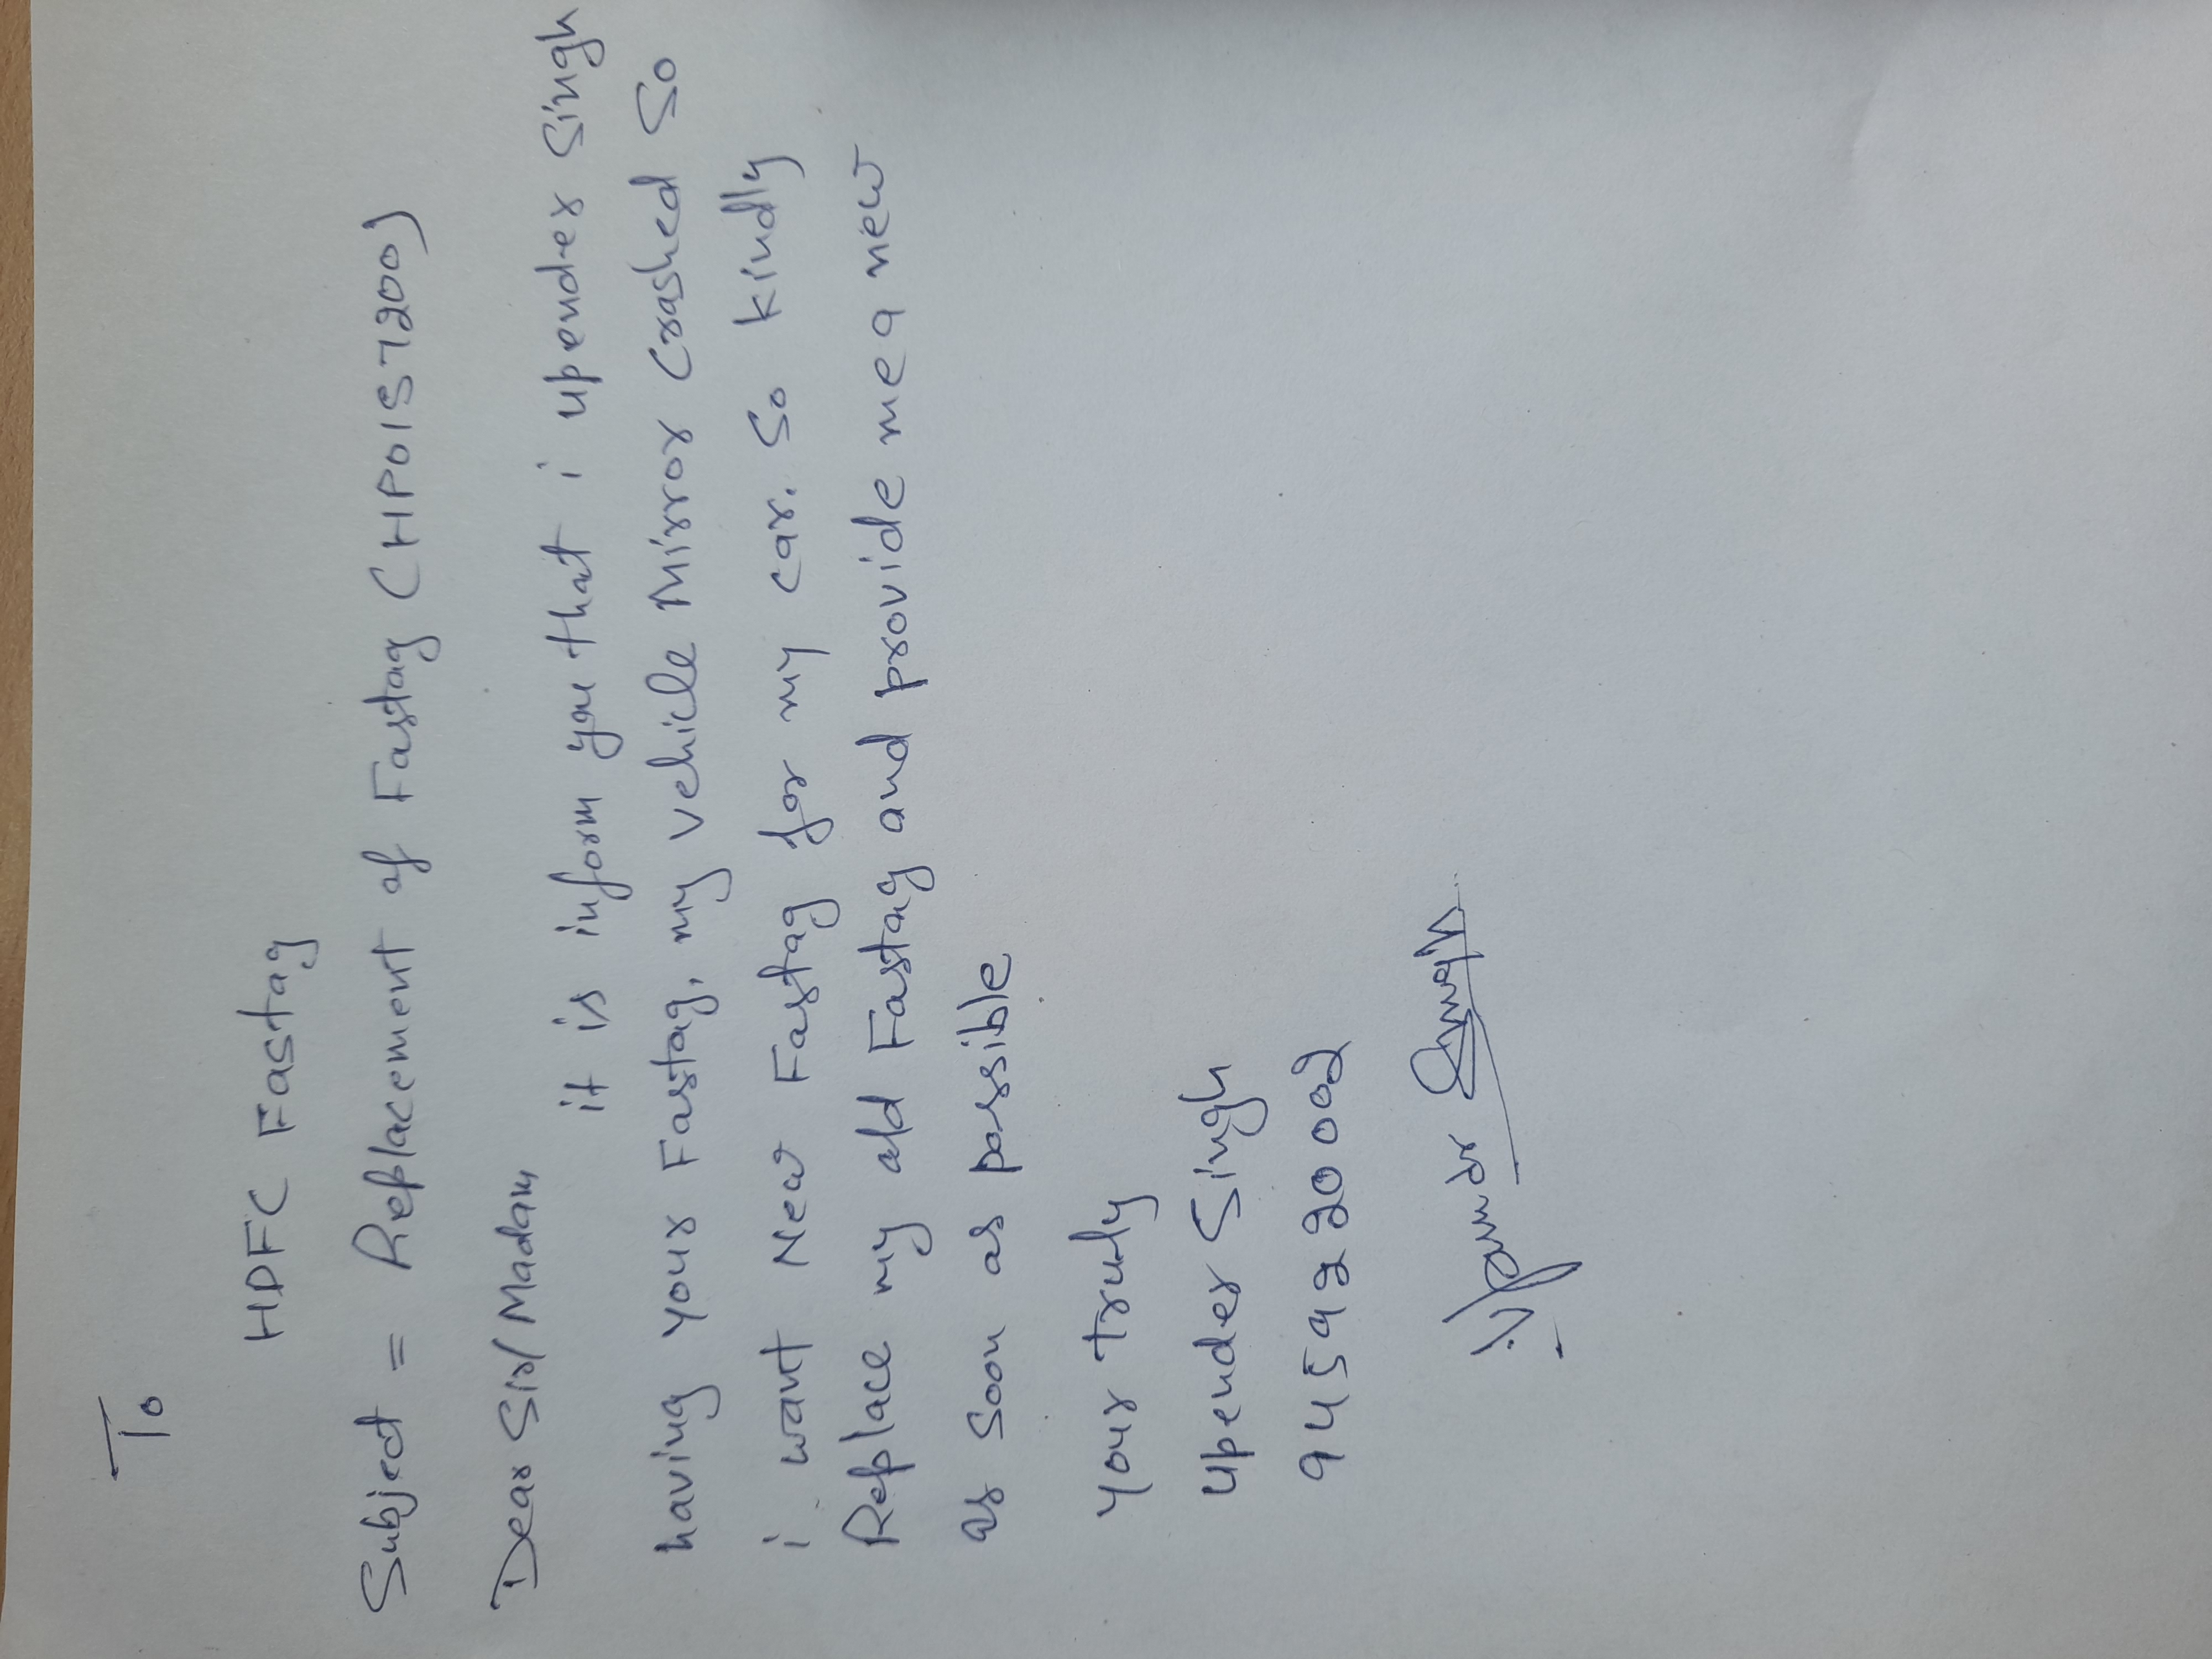 To
HDFC Fastag
Subject = Replacement of Fastag (HP01S7200)
Dear Sir/Madam
it is inform you that i upender Singh
having your Fastag, my vehicle Mirror Crashed So
i want New Fastag for my car. So kindly
Replace my old Fastag and provide me a new
as soon as possible
your truly
upender Singh
9459220002
Upender Singh